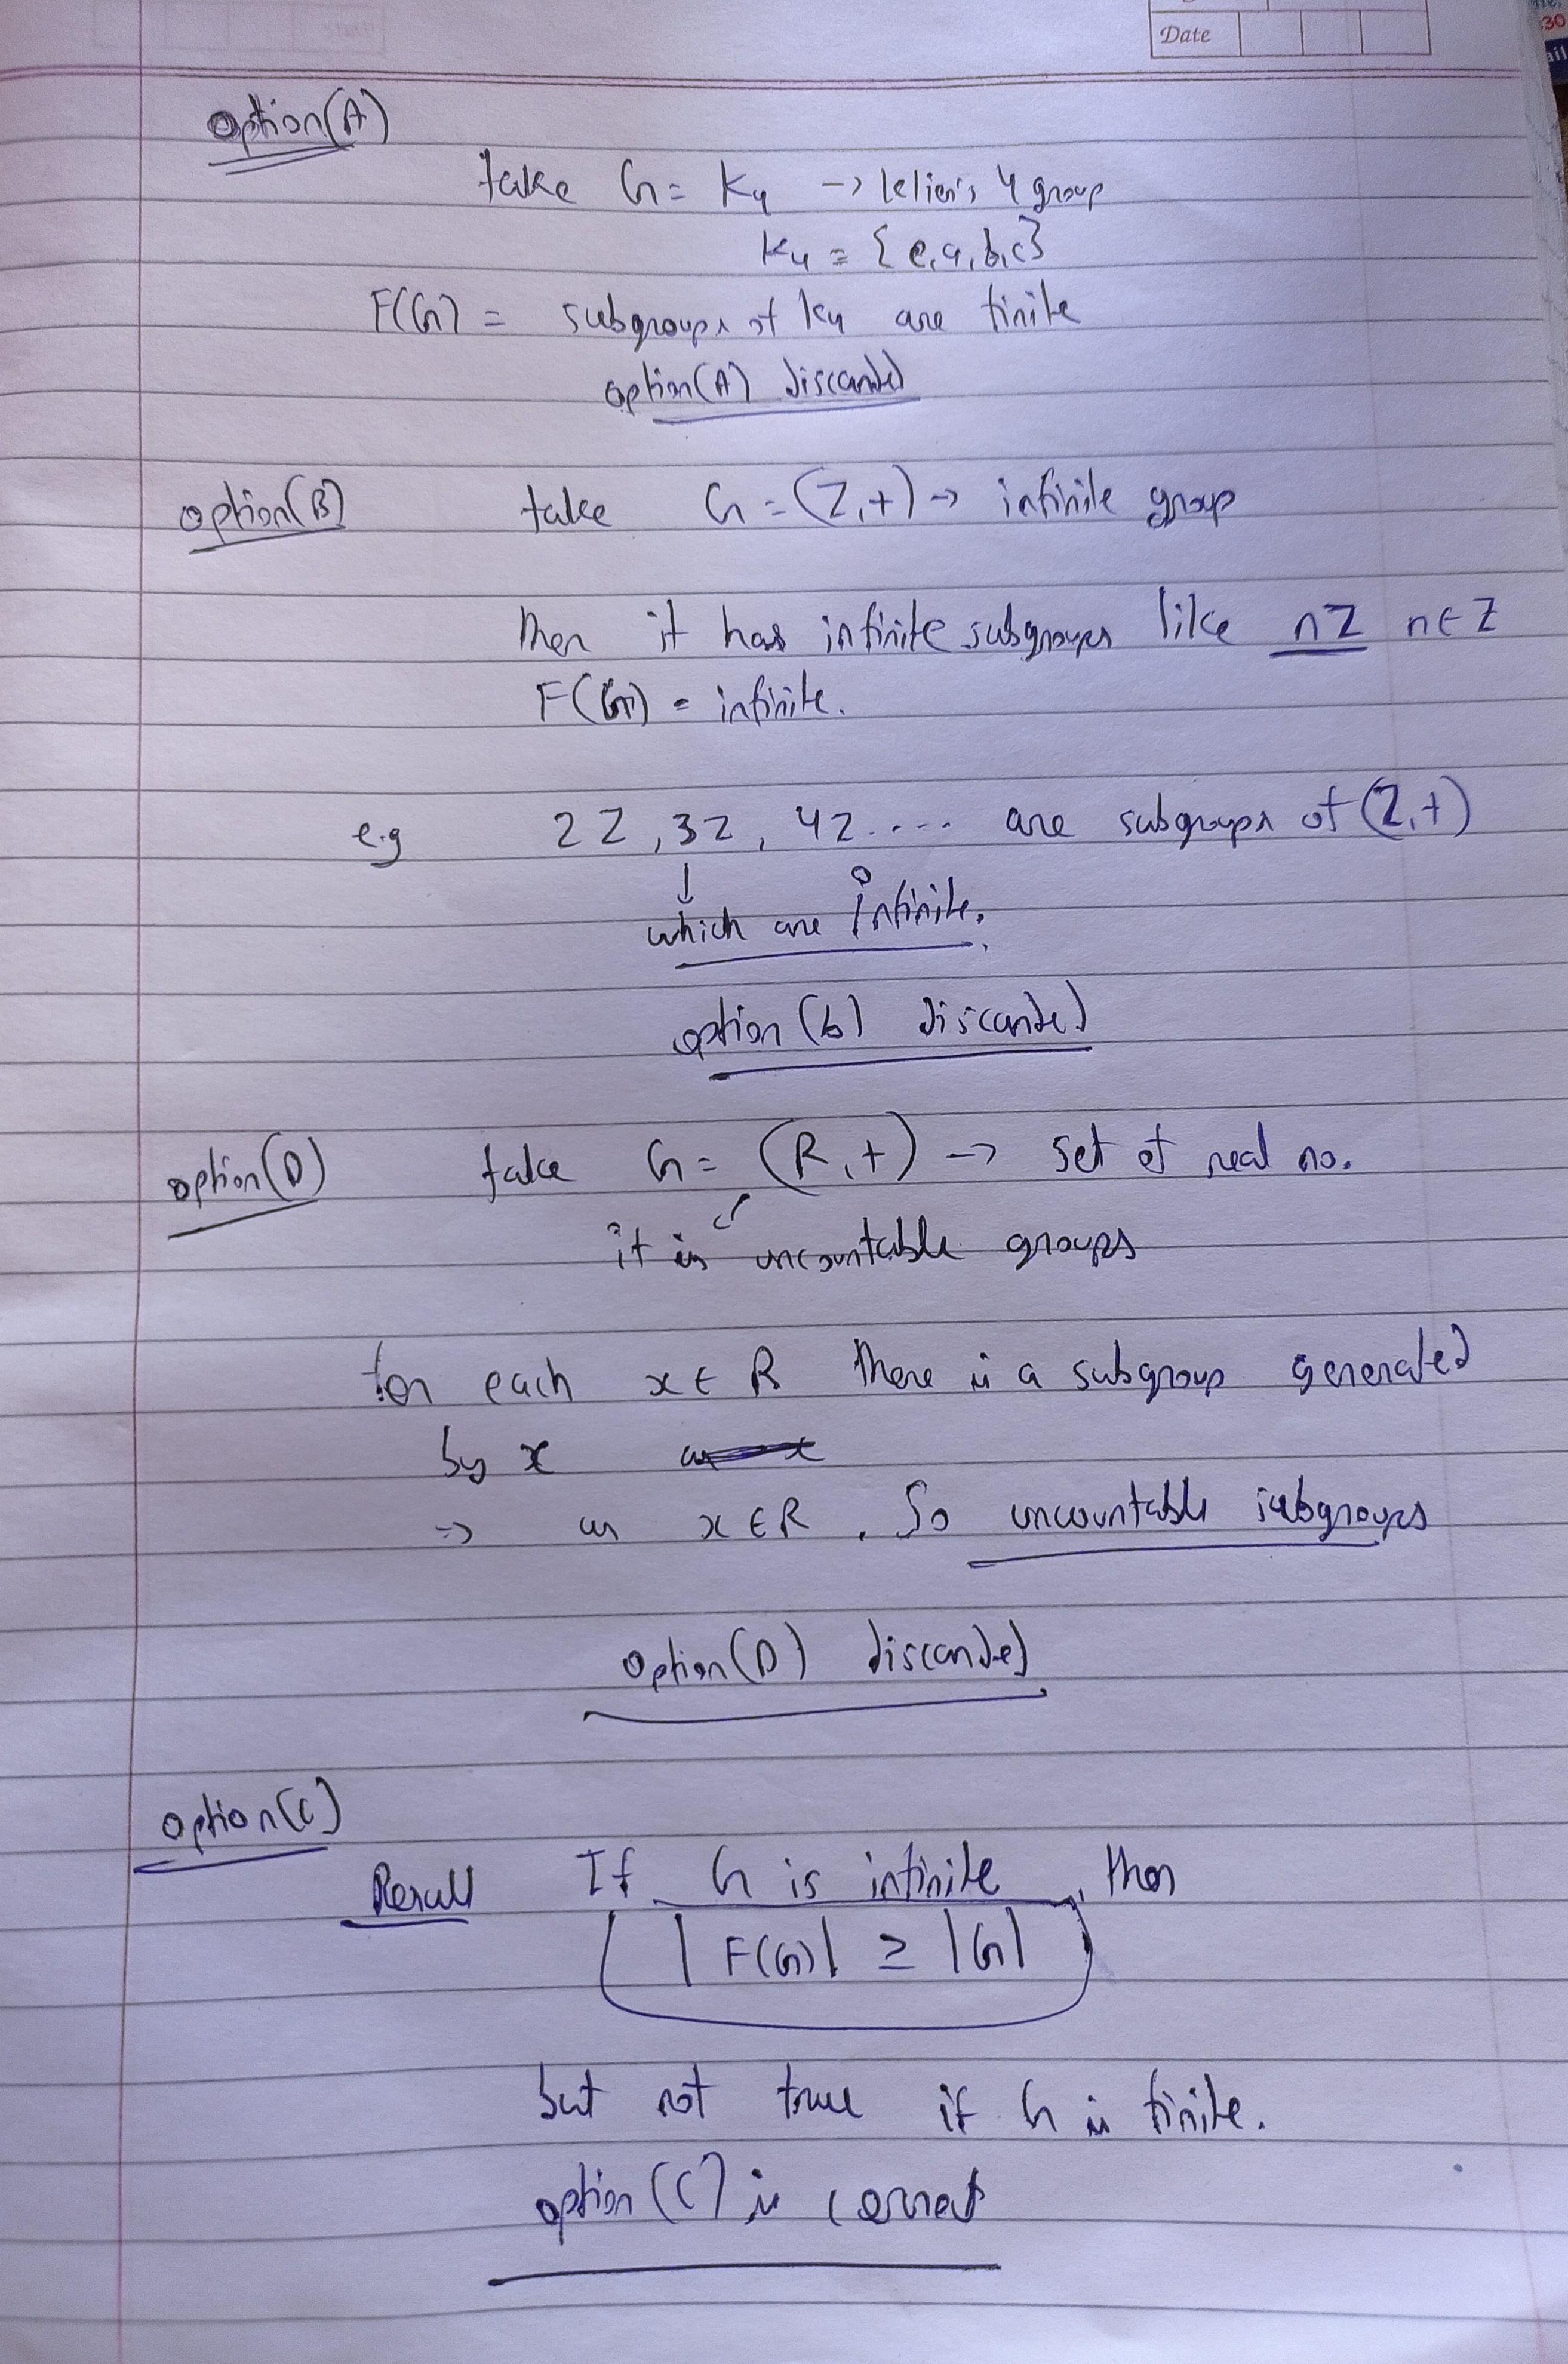 Date
30
ail
option(A)
take G = K4 -> klien's 4 group
K4 = {e,a,b,c}
F(G) = subgroups of K4 are finite
option(A) discarded
option(B) take G = (Z,+) -> infinite group
then it has infinite subgroups like nZ n∈Z
F(G) = infinite.
e.g 2Z, 3Z, 4Z.... are subgroups of (Z,+)
↓
which are infinite.
option (b) discarded
option(D) take G = (R,+) -> set of real no.
it is uncountable groups
for each x ∈ R there is a subgroup generated
by x
=> as x ∈ R. So uncountable subgroups
option(D) discarded
option(C)
Result If G is infinite, then
|F(G)| ≥ |G|
but not true if G is finite.
option (C) is correct